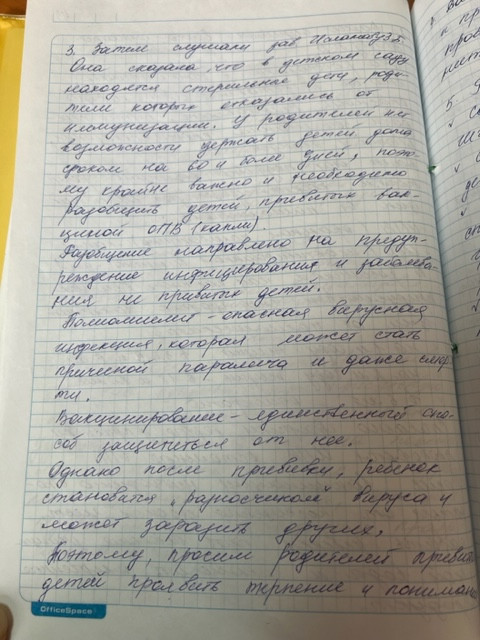 3. Затем слушали зав.
Она сказала, что в детском саду
находятся стерильные дети, роди-
тели которых отказались от
иммунизации. У родителей нет
возможности держать детей дома
сроком на 60 и боле дней, поэто-
му крайне важно и необходимо
разобщить детей, привитых вак-
циной ОПВ (капли).
Разобщение направлено на предуп-
реждение инфицирования и заболева-
ния не привитых детей.
Полиомиелит - опасная вирусная
инфекция, которая может стать
причиной паралича и даже смер-
ти.
Вакцинирование - единственный спо-
соб защититься от нее.
Однако после прививки, ребенок
становится разносчиком вируса и
может заразить других.
Поэтому, просим родителей
детей проявить терпение и
OfficeSpace